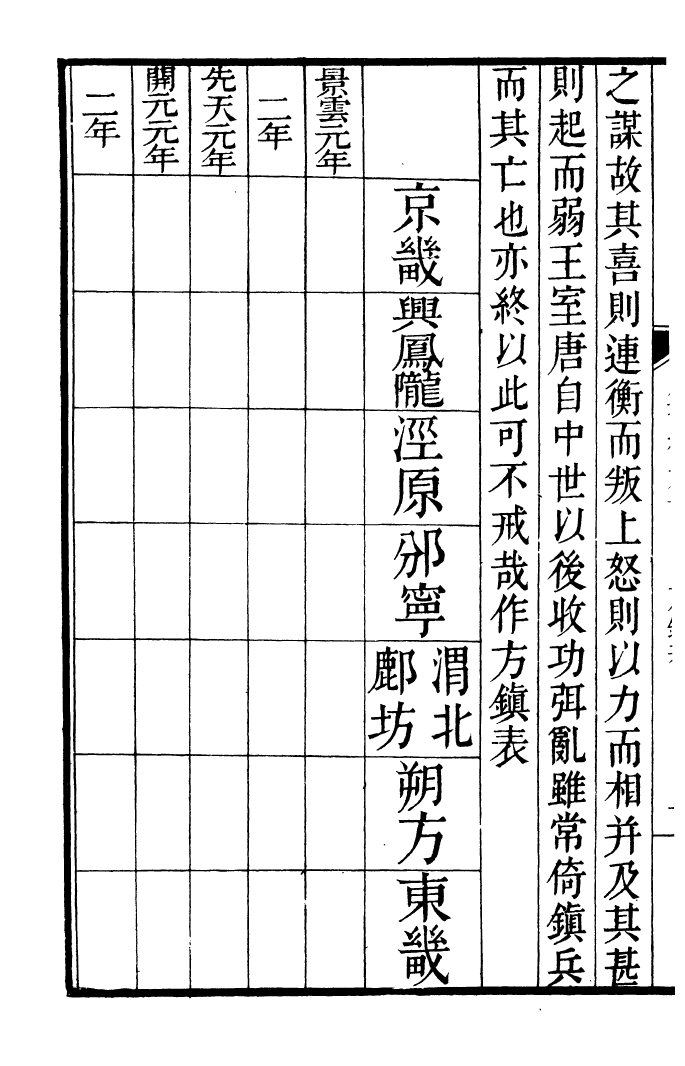 之謀故其喜則連衡而叛上怒則以力而相并及其甚
則起而弱王室唐自中世以後收功弭亂雖常倚鎮兵
而其亡也亦終以此可不戒哉作方鎮表
京畿
興鳳隴
涇原
邠寧
渭北
鄜坊
朔方
東畿
景雲元年
二年
先天元年
開元元年
二年